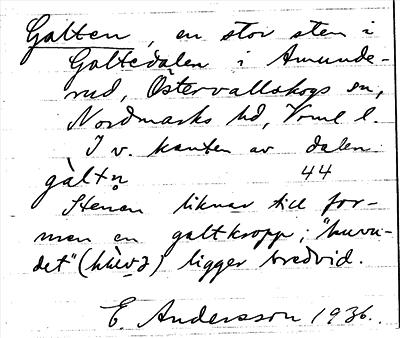 Galten, en stor sten i
Galtedalen i Amunde-
rud, Östervallskogs sn,
Nordmarks hd, Vrml l.
I v. kanten av dalen
gàltn̥ 44
Stenen liknar till for-
men en galtkropp; "huvu-
det" ligger bredvid.
E. Andersson 1936.